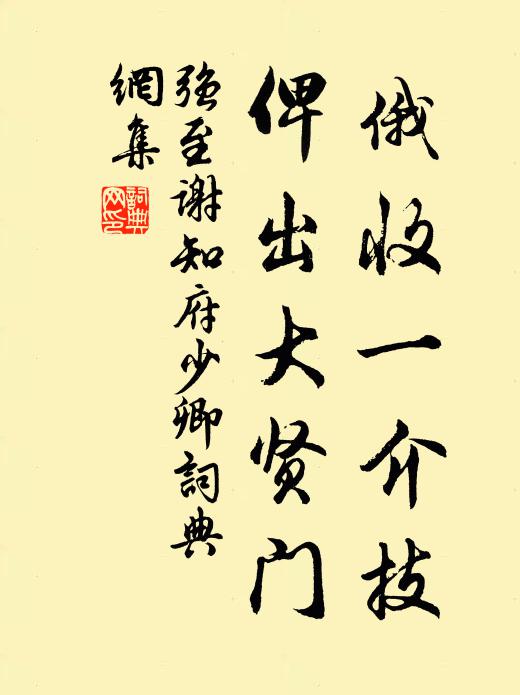 俄收一介技
俾出大贤门
强至谢知府少卿詞典
網集
詞典
网印